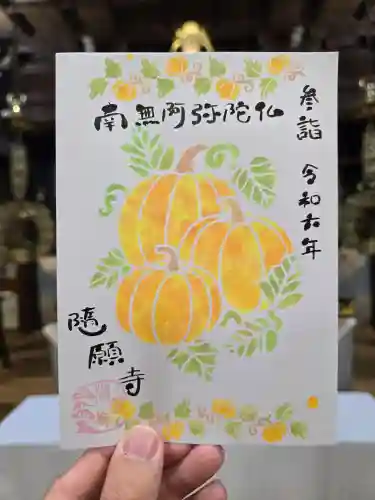 南無阿弥陀仏
参詣 令和六年
隨願寺